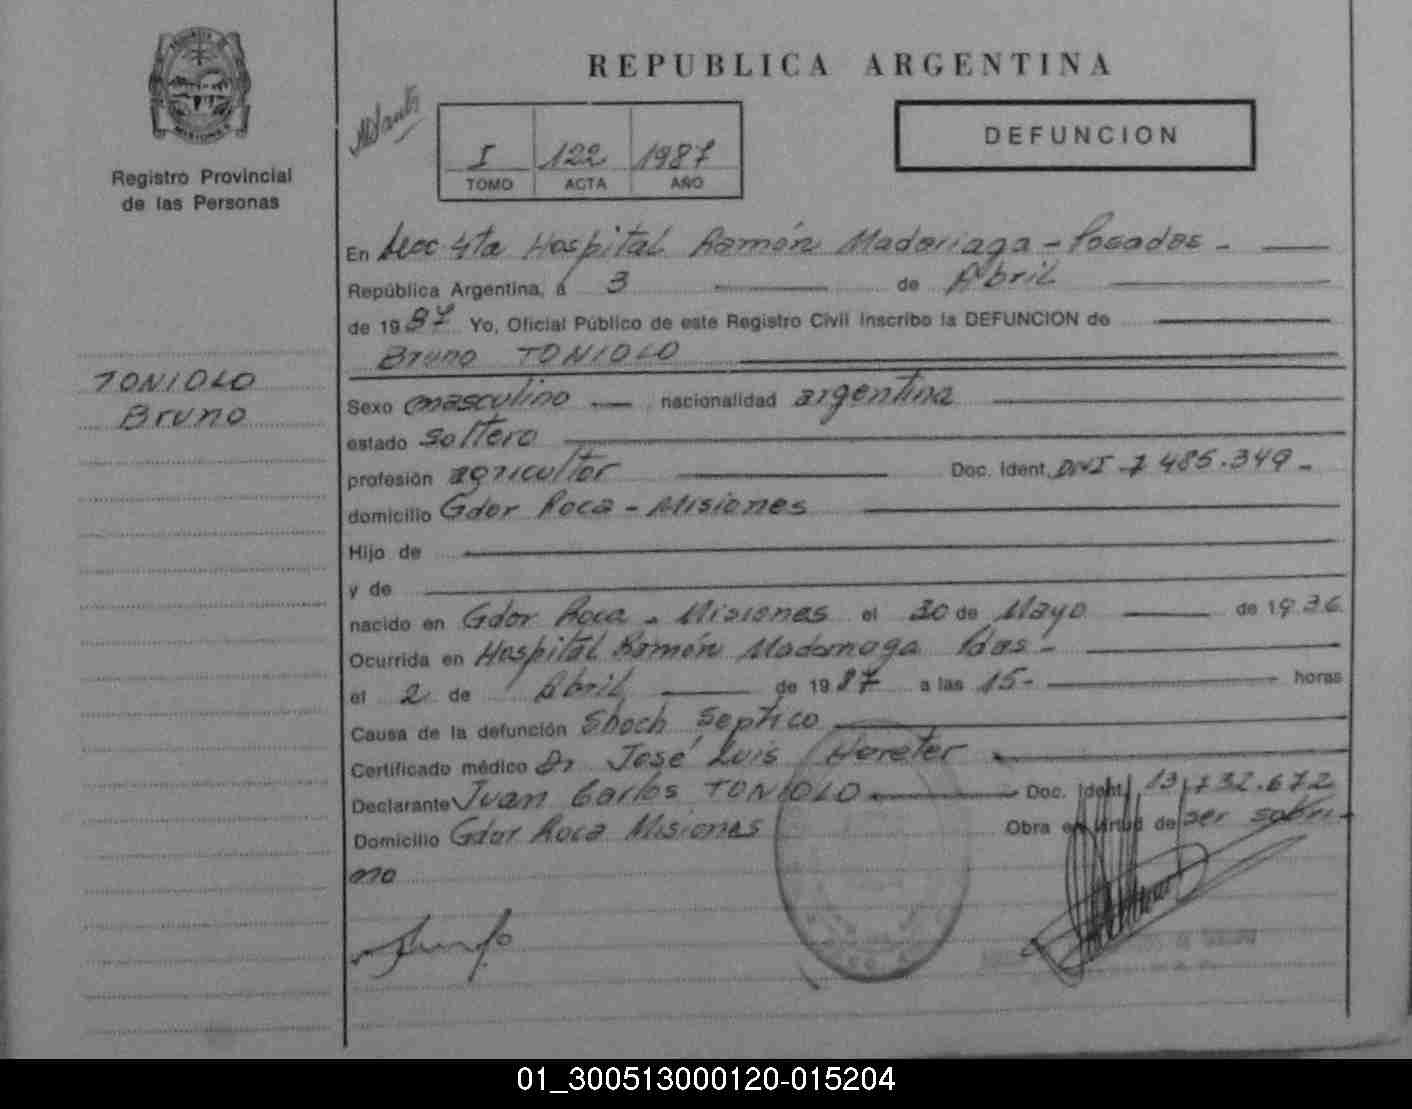 REPUBLICA ARGENTINA
DEFUNCION
I 122 1987
TOMO ACTA AÑO
Registro Provincial
de las Personas
TONIOLO
Bruno
En Secc 4ta Hospital Ramón Madariaga - Posadas -
República Argentina, a 3 de Abril
de 1987 Yo, Oficial Público de este Registro Civil inscribo la DEFUNCION de
Bruno TONIOLO
Sexo masculino nacionalidad argentina
estado soltero
profesión agricultor Doc. Ident. DNI 7 485.349-
domicilio Gdor Roca - Misiones
Hijo de
y de
nacido en Gdor Roca - Misiones el 30 de Mayo de 1936
Ocurrida en Hospital Ramón Madariaga Pdas -
el 2 de Abril de 1987 a las 15- horas
Causa de la defunción Shoch Septico
Certificado médico Dr José Luis Hereter
Declarante Juan Carlos TONIOLO Doc. Ident. 13.732.672
Domicilio Gdor Roca Misiones Obra en virtud de ser sobri-
no
01_300513000120-015204